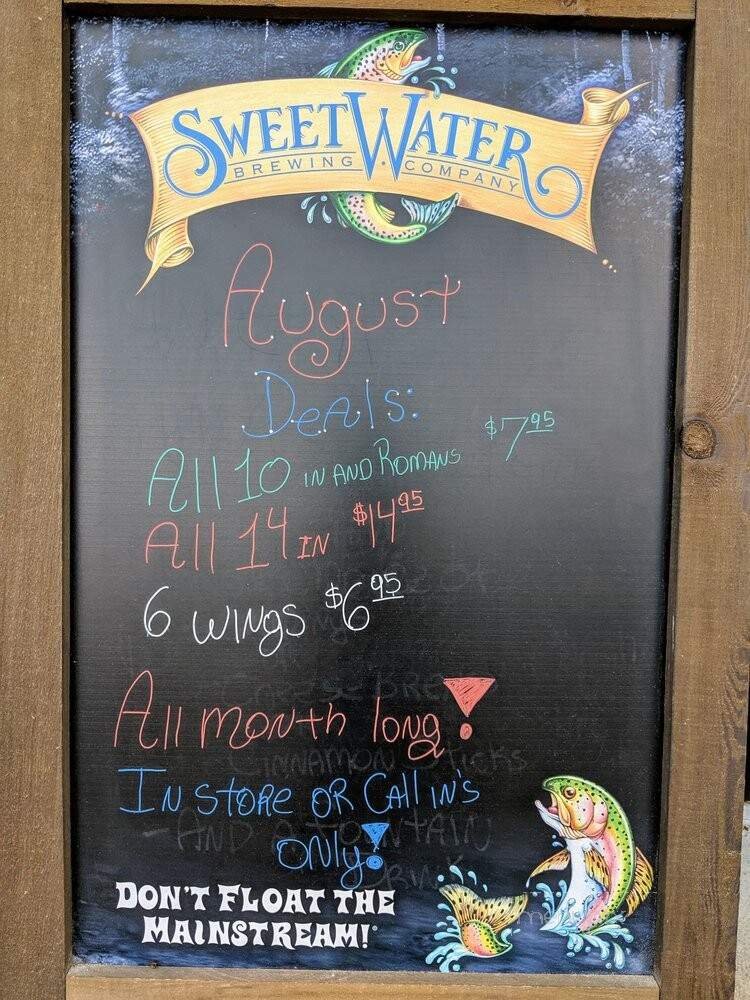 SWEETWATER
BREWING COMPANY
August
Deals:
All 10 IN AND ROMANS $7.95
All 14 IN $14.95
6 WINGS $6.95
CHEESE BRE
All month long!
CINNAMON Sticks
IN STORE OR CALL IN'S
- AND A FOUNTAIN
ONLY!
DRINK
DON'T FLOAT THE
MAINSTREAM!